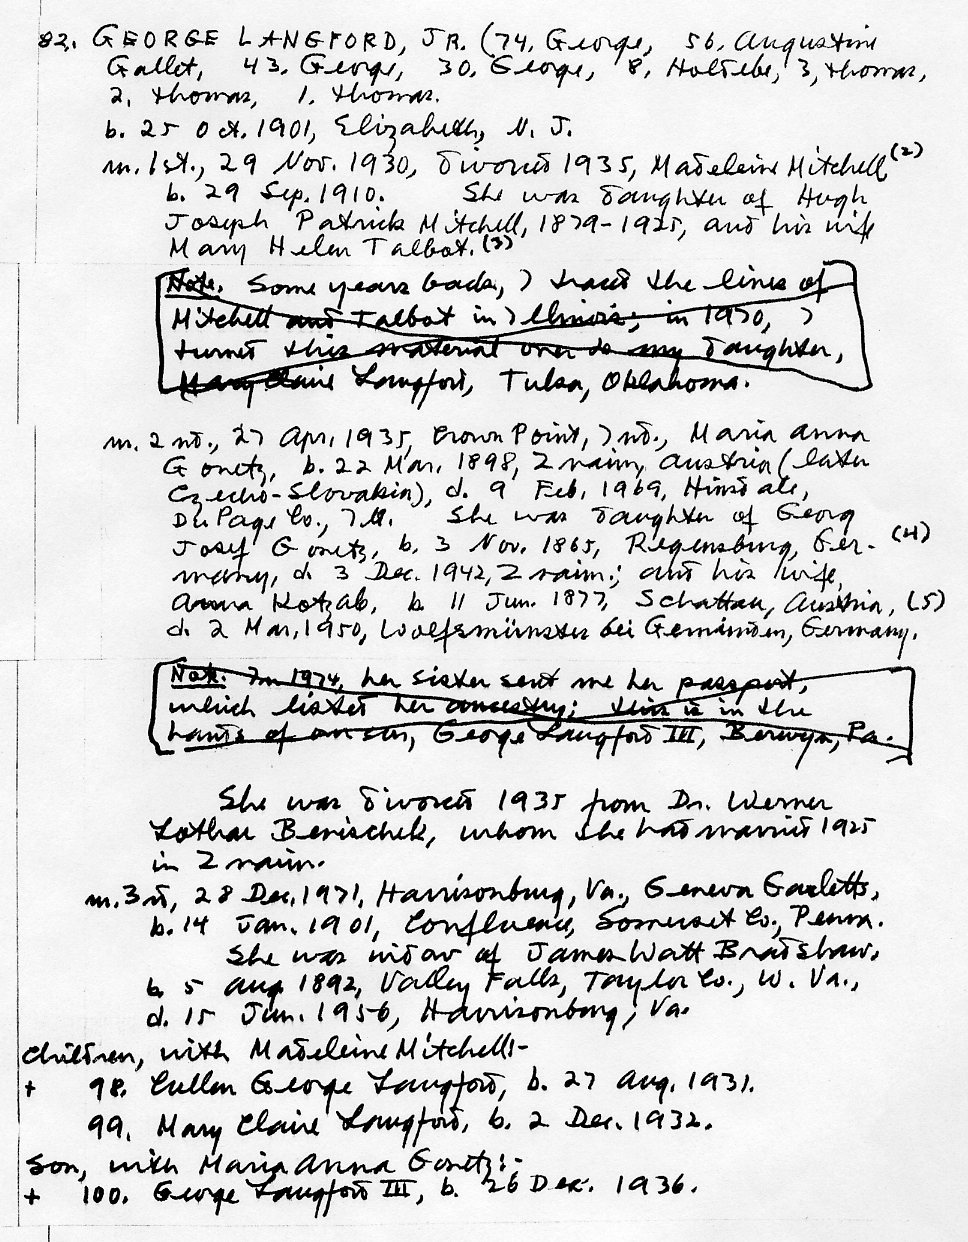 82. GEORGE LANGFORD, JR. (74. George, 56. Augustine
Gallet, 43. George, 30. George, 8. Holtebe, 3, thomas,
2. thomas, 1. thomas.
b. 25 Oct. 1901, Elizabeth, N. J.
m. 1st., 29 Nov. 1930, divorced 1935, Madeleine Mitchell (2)
b. 29 Sep. 1910. She was daughter of Hugh
Joseph Patrick Mitchell, 1879-1925, and his wife
Mary Helen Talbot. (3)
Note. Some years back, I traced the lines of
Mitchell and Talbot in Illinois; in 1970, I
turned this material over to my daughter,
Mary Claire Langford, Tulsa, Oklahoma.
m. 2nd., 27 Apr. 1935, Crown Point, Ind., Maria Anna
Gonetz, b. 22 Mar. 1898, Znaim, Austria (later
Czecho-Slovakia), d. 9 Feb. 1969, Hinsdale,
DuPage Co., Ill. She was daughter of Georg
Josef Gonetz, b. 3 Nov. 1865, Regensburg, Ger- (4)
many, d. 3 Dec. 1942, Znaim; and his wife,
Anna Kotzab, b. 11 Jun. 1877, Schattau, Austria, (5)
d. 2 Mar. 1950, Wolfsmünster bei Gemünden, Germany.
Note: In 1974, her sister sent me her passport,
which listed her ancestry; this is in the
hands of our son, George Langford III, Berwyn, Pa.
She was divorced 1935 from Dr. Werner
Lothar Benischek, whom she had married 1925
in Znaim.
m. 3rd, 28 Dec. 1971, Harrisonburg, Va., Geneva Garletts,
b. 14 Jan. 1901, Confluence, Somerset Co., Penna.
She was widow of James Watt Bradshaw,
b. 5 Aug 1892, Valley Falls, Taylor Co., W. Va.,
d. 15 Jun. 1956, Harrisonburg, Va.
Children, with Madeleine Mitchell:-
+ 98. Cullen George Langford, b. 27 Aug. 1931.
99. Mary Claire Langford, b. 2 Dec. 1932.
Son, with Maria Anna Gonetz:-
+ 100. George Langford III, b. 26 Dec. 1936.